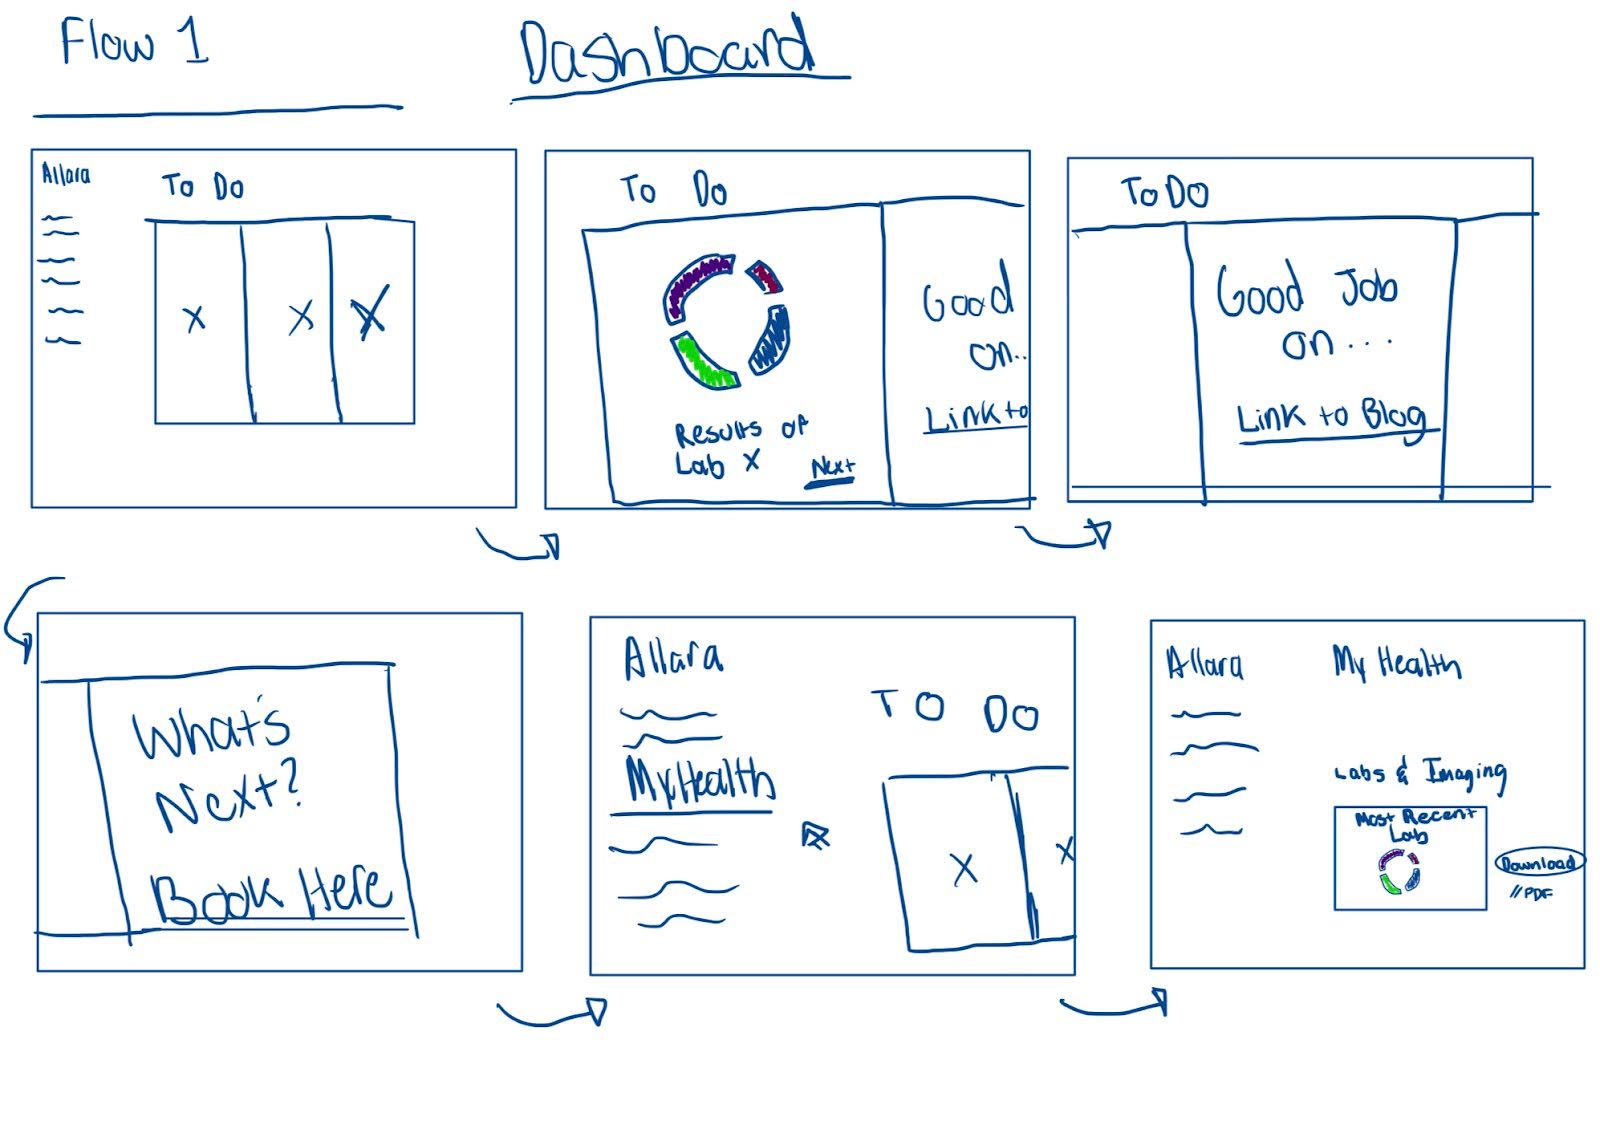 Flow 1
Dashboard
Allara
To Do
X X X
To Do
Results of
Lab X
Next
Good
on..
Link to
To Do
Good Job
on...
Link to Blog
What's
Next?
Book Here
Allara
My Health
TO DO
X X
Allara
My Health
Labs & Imaging
Most Recent
Lab
Download
//PDF